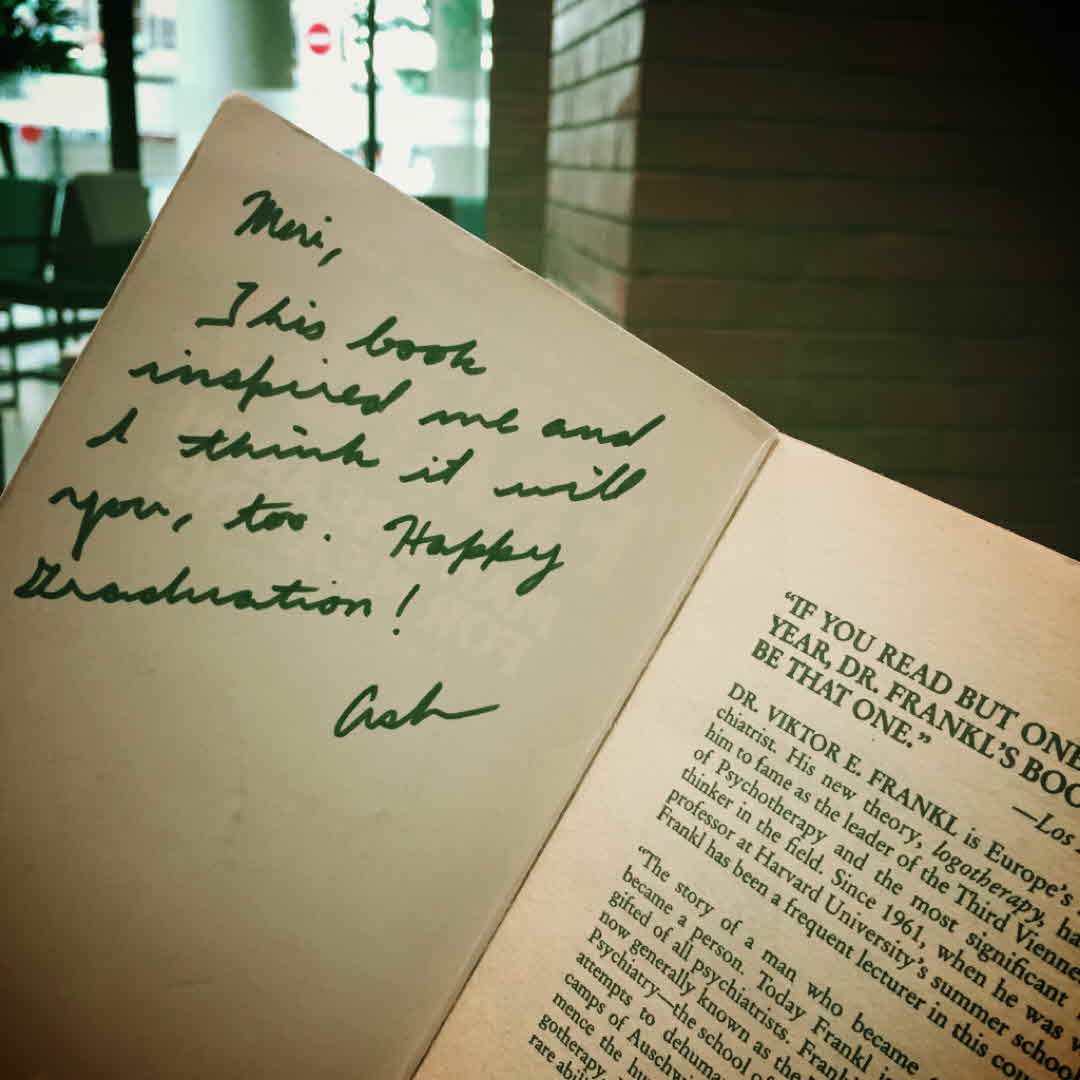 Meri,
This book
inspired me and
I think it will
you, too. Happy
Graduation!
Ash
“IF YOU READ BUT ONE
YEAR, DR. FRANKL’S BOO
BE THAT ONE.”
—Los
DR. VIKTOR E. FRANKL is Europe’s
chiatrist. His new theory, logotherapy, ha
him to fame as the leader of the Third Vienne
of Psychotherapy and the most significant
thinker in the field. Since 1961, when he was
professor at Harvard University’s summer school
Frankl has been a frequent lecturer in this cou
“The story of a man who became
became a person. Today Frankl is
gifted of all psychiatrists. Frank
now generally known as the
Psychiatry—the school of
attempts to dehuma
camps of Auschw
mence the hu
gotherapy,
rare abili